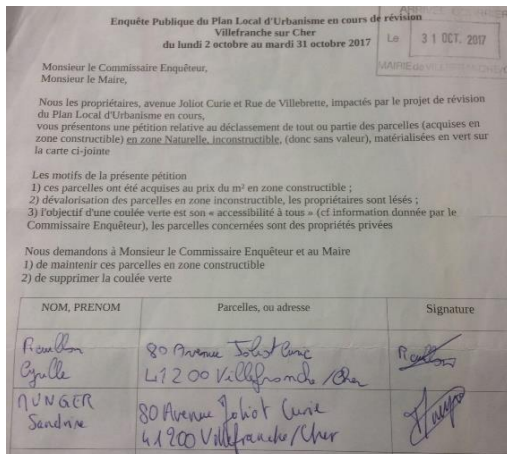 Enquête Publique du Plan Local d'Urbanisme en cours de révision
Villefranche sur Cher
du lundi 2 octobre au mardi 31 octobre 2017
Le 31 OCT. 2017
MAIRIE de
Monsieur le Commissaire Enquêteur,
Monsieur le Maire,
Nous les propriétaires, avenue Joliot Curie et Rue de Villebrette, impactés par le projet de révision
du Plan Local d'Urbanisme en cours,
vous présentons une pétition relative au déclassement de tout ou partie des parcelles (acquises en
zone constructible) en zone Naturelle, inconstructible, (donc sans valeur), matérialisées en vert sur
la carte ci-jointe
Les motifs de la présente pétition
1) ces parcelles ont été acquises au prix du m² en zone constructible ;
2) dévalorisation des parcelles en zone inconstructible, les propriétaires sont lésés ;
3) l'objectif d'une coulée verte est son « accessibilité à tous » (cf information donnée par le
Commissaire Enquêteur), les parcelles concernées sont des propriétés privées
Nous demandons à Monsieur le Commissaire Enquêteur et au Maire
1) de maintenir ces parcelles en zone constructible
2) de supprimer la coulée verte
NOM, PRENOM Parcelles, ou adresse Signature
Rouillon 80 Avenue Joliot Curie Rouillon
Cyrille 41200 Villefranche/Cher
MUNGER 80 Avenue Joliot Curie
Sandrine 41200 Villefranche/Cher